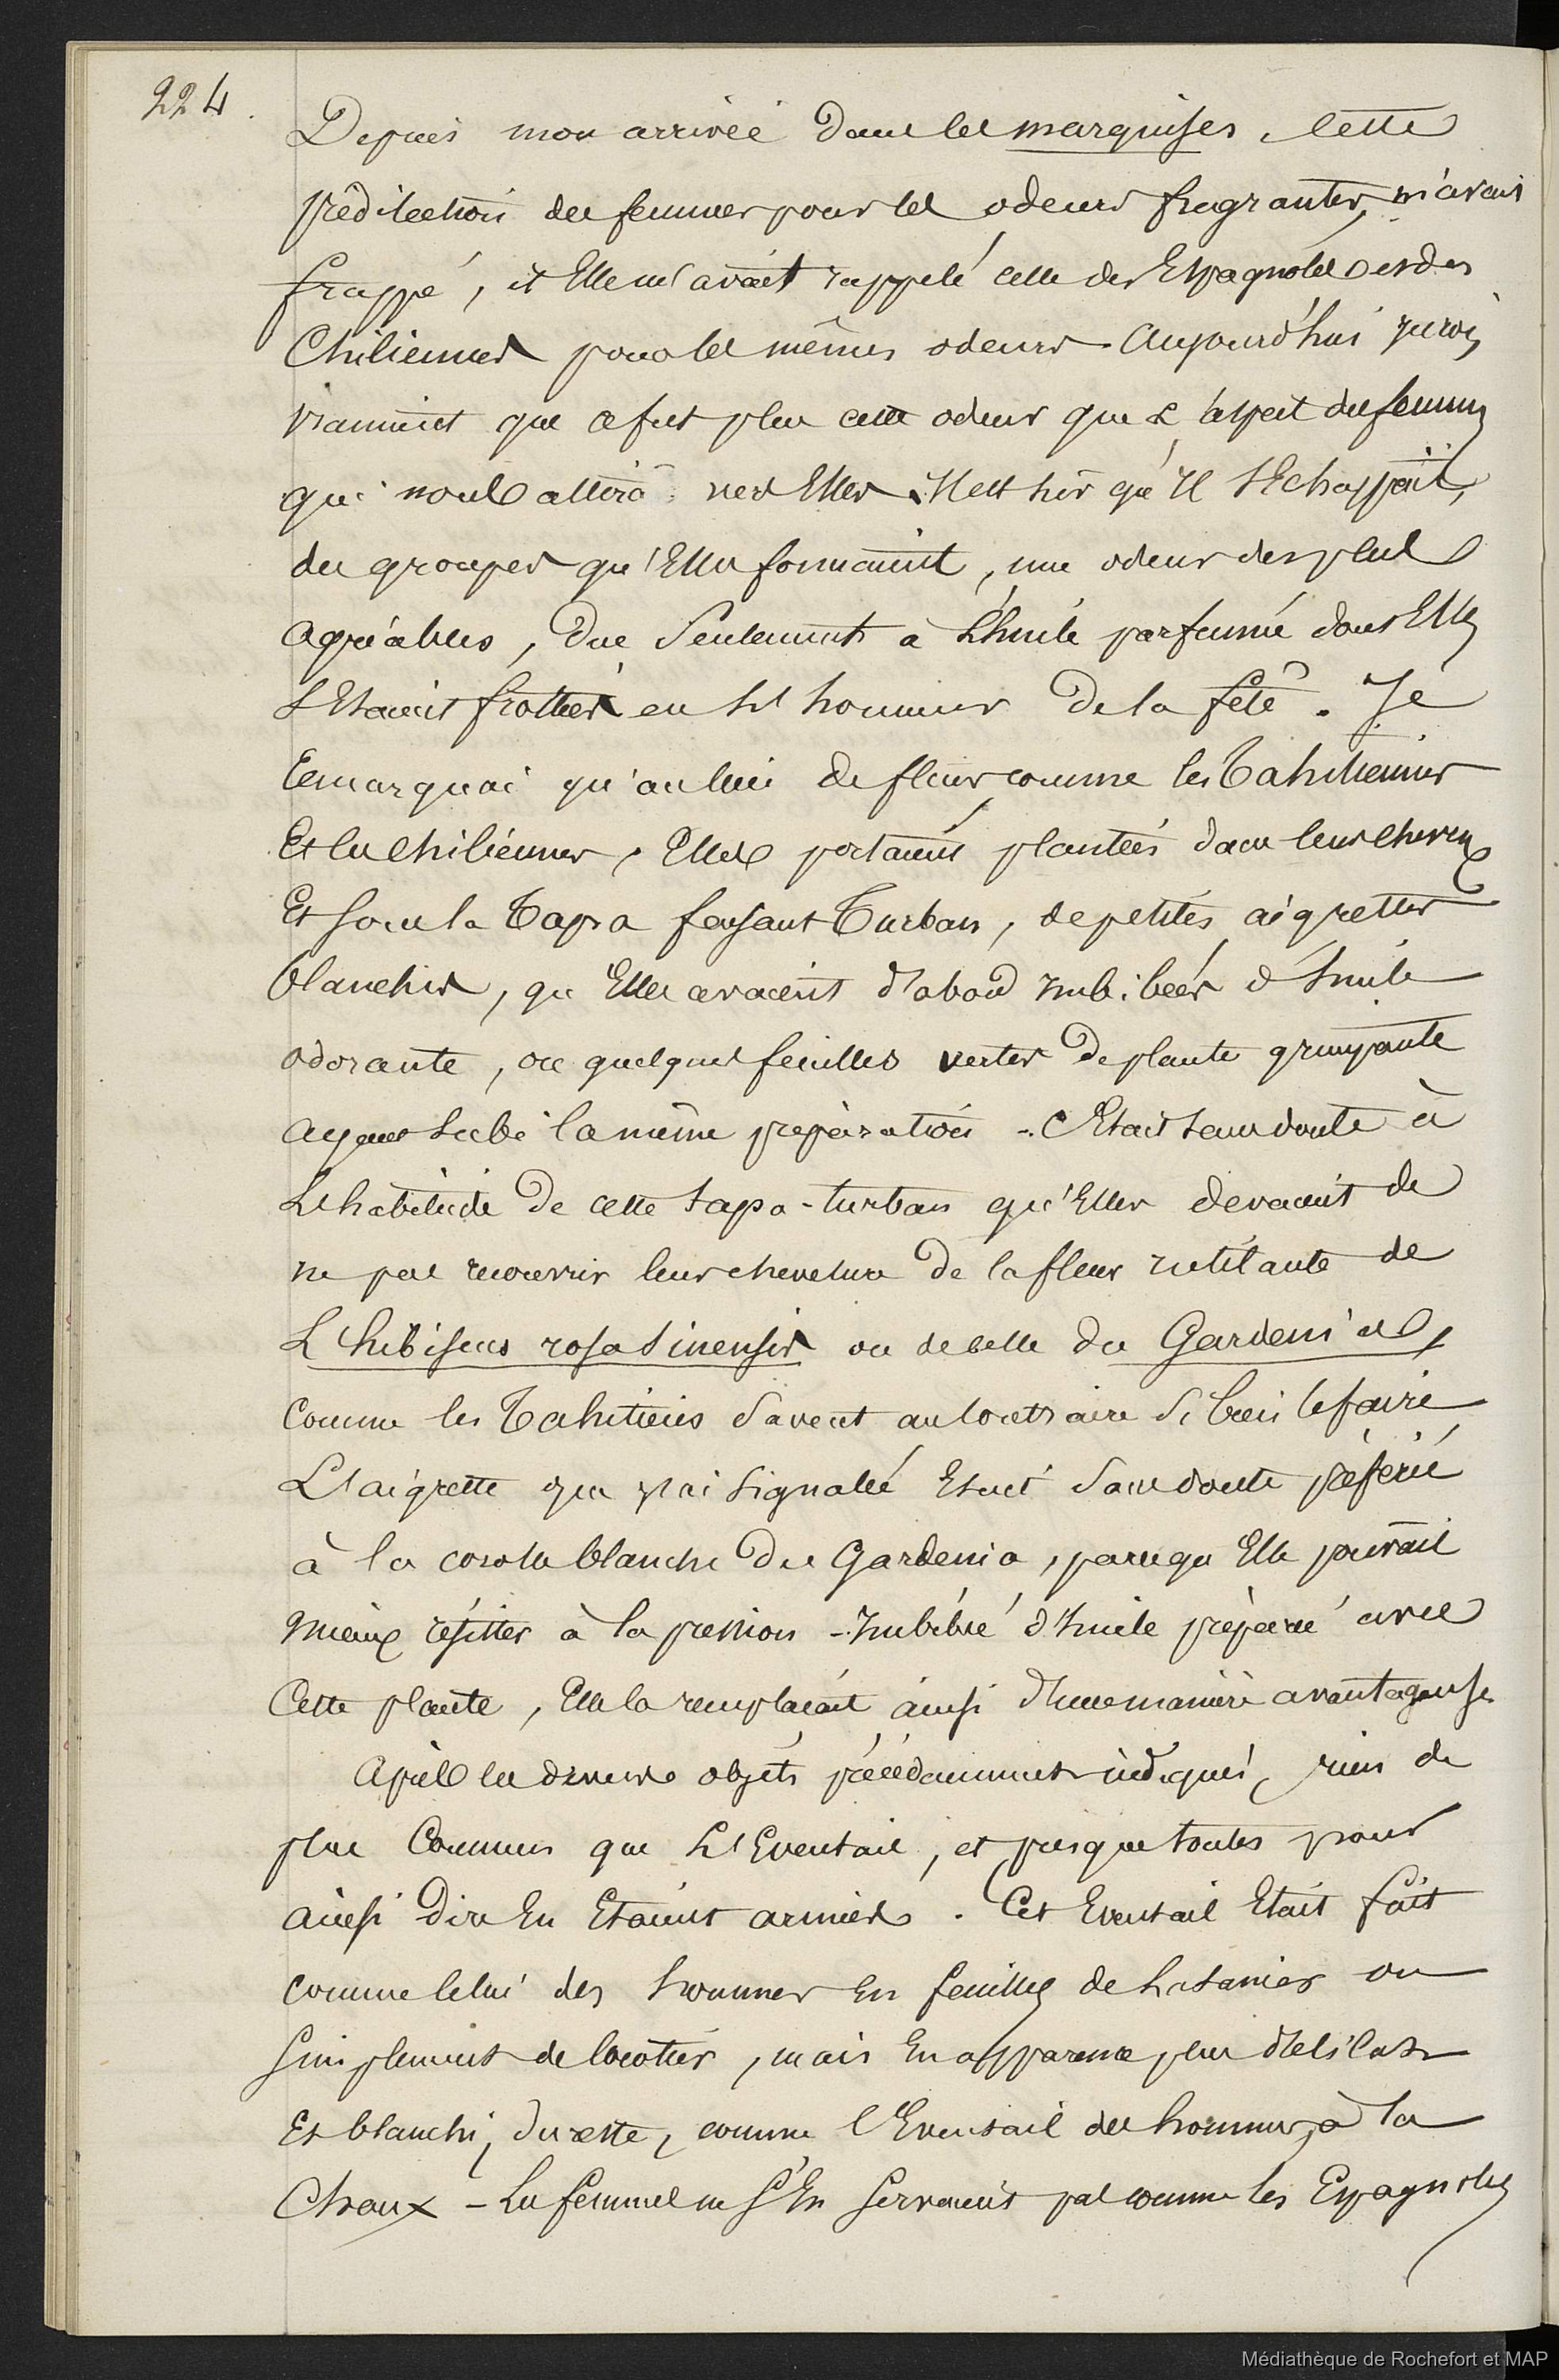 224.
Depuis mon arrivée dans les marquises, cette
prédilection des femmes pour les odeurs fragrantes, m'avait
frappé, et Elle m'avait rappelé celle des Espagnoles et des
Chiliennes pour les mêmes odeurs. Aujourd'hui je crois
vraiment que ce fut plus cette odeur que L'aspect des femmes
qui nous attira vers Elles. Il est sûr qu'Il s'Echappait,
des groupes qu'Elles formaient, une odeur des plus
agréables, due Seulement à L'huile parfumée dont Elles
s'Etaient frottées en l'honneur de la fête. Je
remarquai qu'au lieu de fleurs comme les Tahitiennes
Et les Chiliennes, Elles portaient plantées dans leurs cheveux
Et sous la Tapa faisant Turban, de petites aigrettes
blanches, qu'Elles avaient d'abord imbibées d'huile
odorante, ou quelques feuilles vertes de plante grimpante
ayant subi la même préparation. C'Etait sans doute à
L'habitude de cette tapa-turban qu'Elles devaient de
ne pas recouvrir leur chevelure de la fleur rutilante de
L'hibiscus rosa Sinensis ou de celle du Gardenia,
comme les Tahitiens Savent au contraire Si bien le faire
L'aigrette que j'ai Signalée Etait Sans doute préférée
à la corolle blanche du Gardenia, parce qu'Elle pouvait
mieux résister à la pression - Imbibée d'huile préparée avec
Cette plante, Elle la remplaçait ainsi d'une manière avantageuse
Après les divers objets précédamment indiqués, rien de
plus Commun que L'Eventail, et presque toutes pour
ainsi dire En Etaient armées. Cet Eventail Etait fait
comme celui des hommes En feuilles de Latanier ou
Simplement de Cocotier, mais En apparence plus délicat
Et blanchi, du reste, comme l'Eventail des hommes, à la
Chaux - Les femmes ne s'En Servaient pas comme les Espagnoles
Médiathèque de Rochefort et MAP